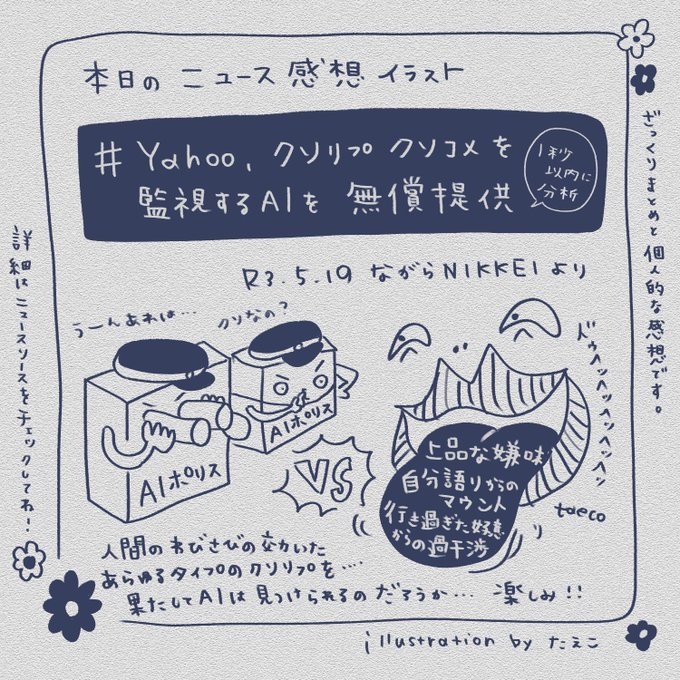 本日の ニュース 感想 イラスト
# Yahoo, クソリプ クソコメを
監視するAIを 無償提供
1秒
以内に
分析
R3.5.19 ながらNIKKEIより
ざっくりまとめと個人的な感想です。
詳細はニュースソースをチェックしてね!
うーんあれは…
クソなの?
AIポリス
AIポリス
VS
ドゥヘッヘッヘッヘッヘッ
上品な嫌味
自分語りからの
マウント
行き過ぎた好意
からの過干渉
taeco
人間のわびさびの交かいた
あらゆるタイプのクソリプを….
果たしてAIは見つけられるのだろうか… 楽しみ!!
illustration by たえこ